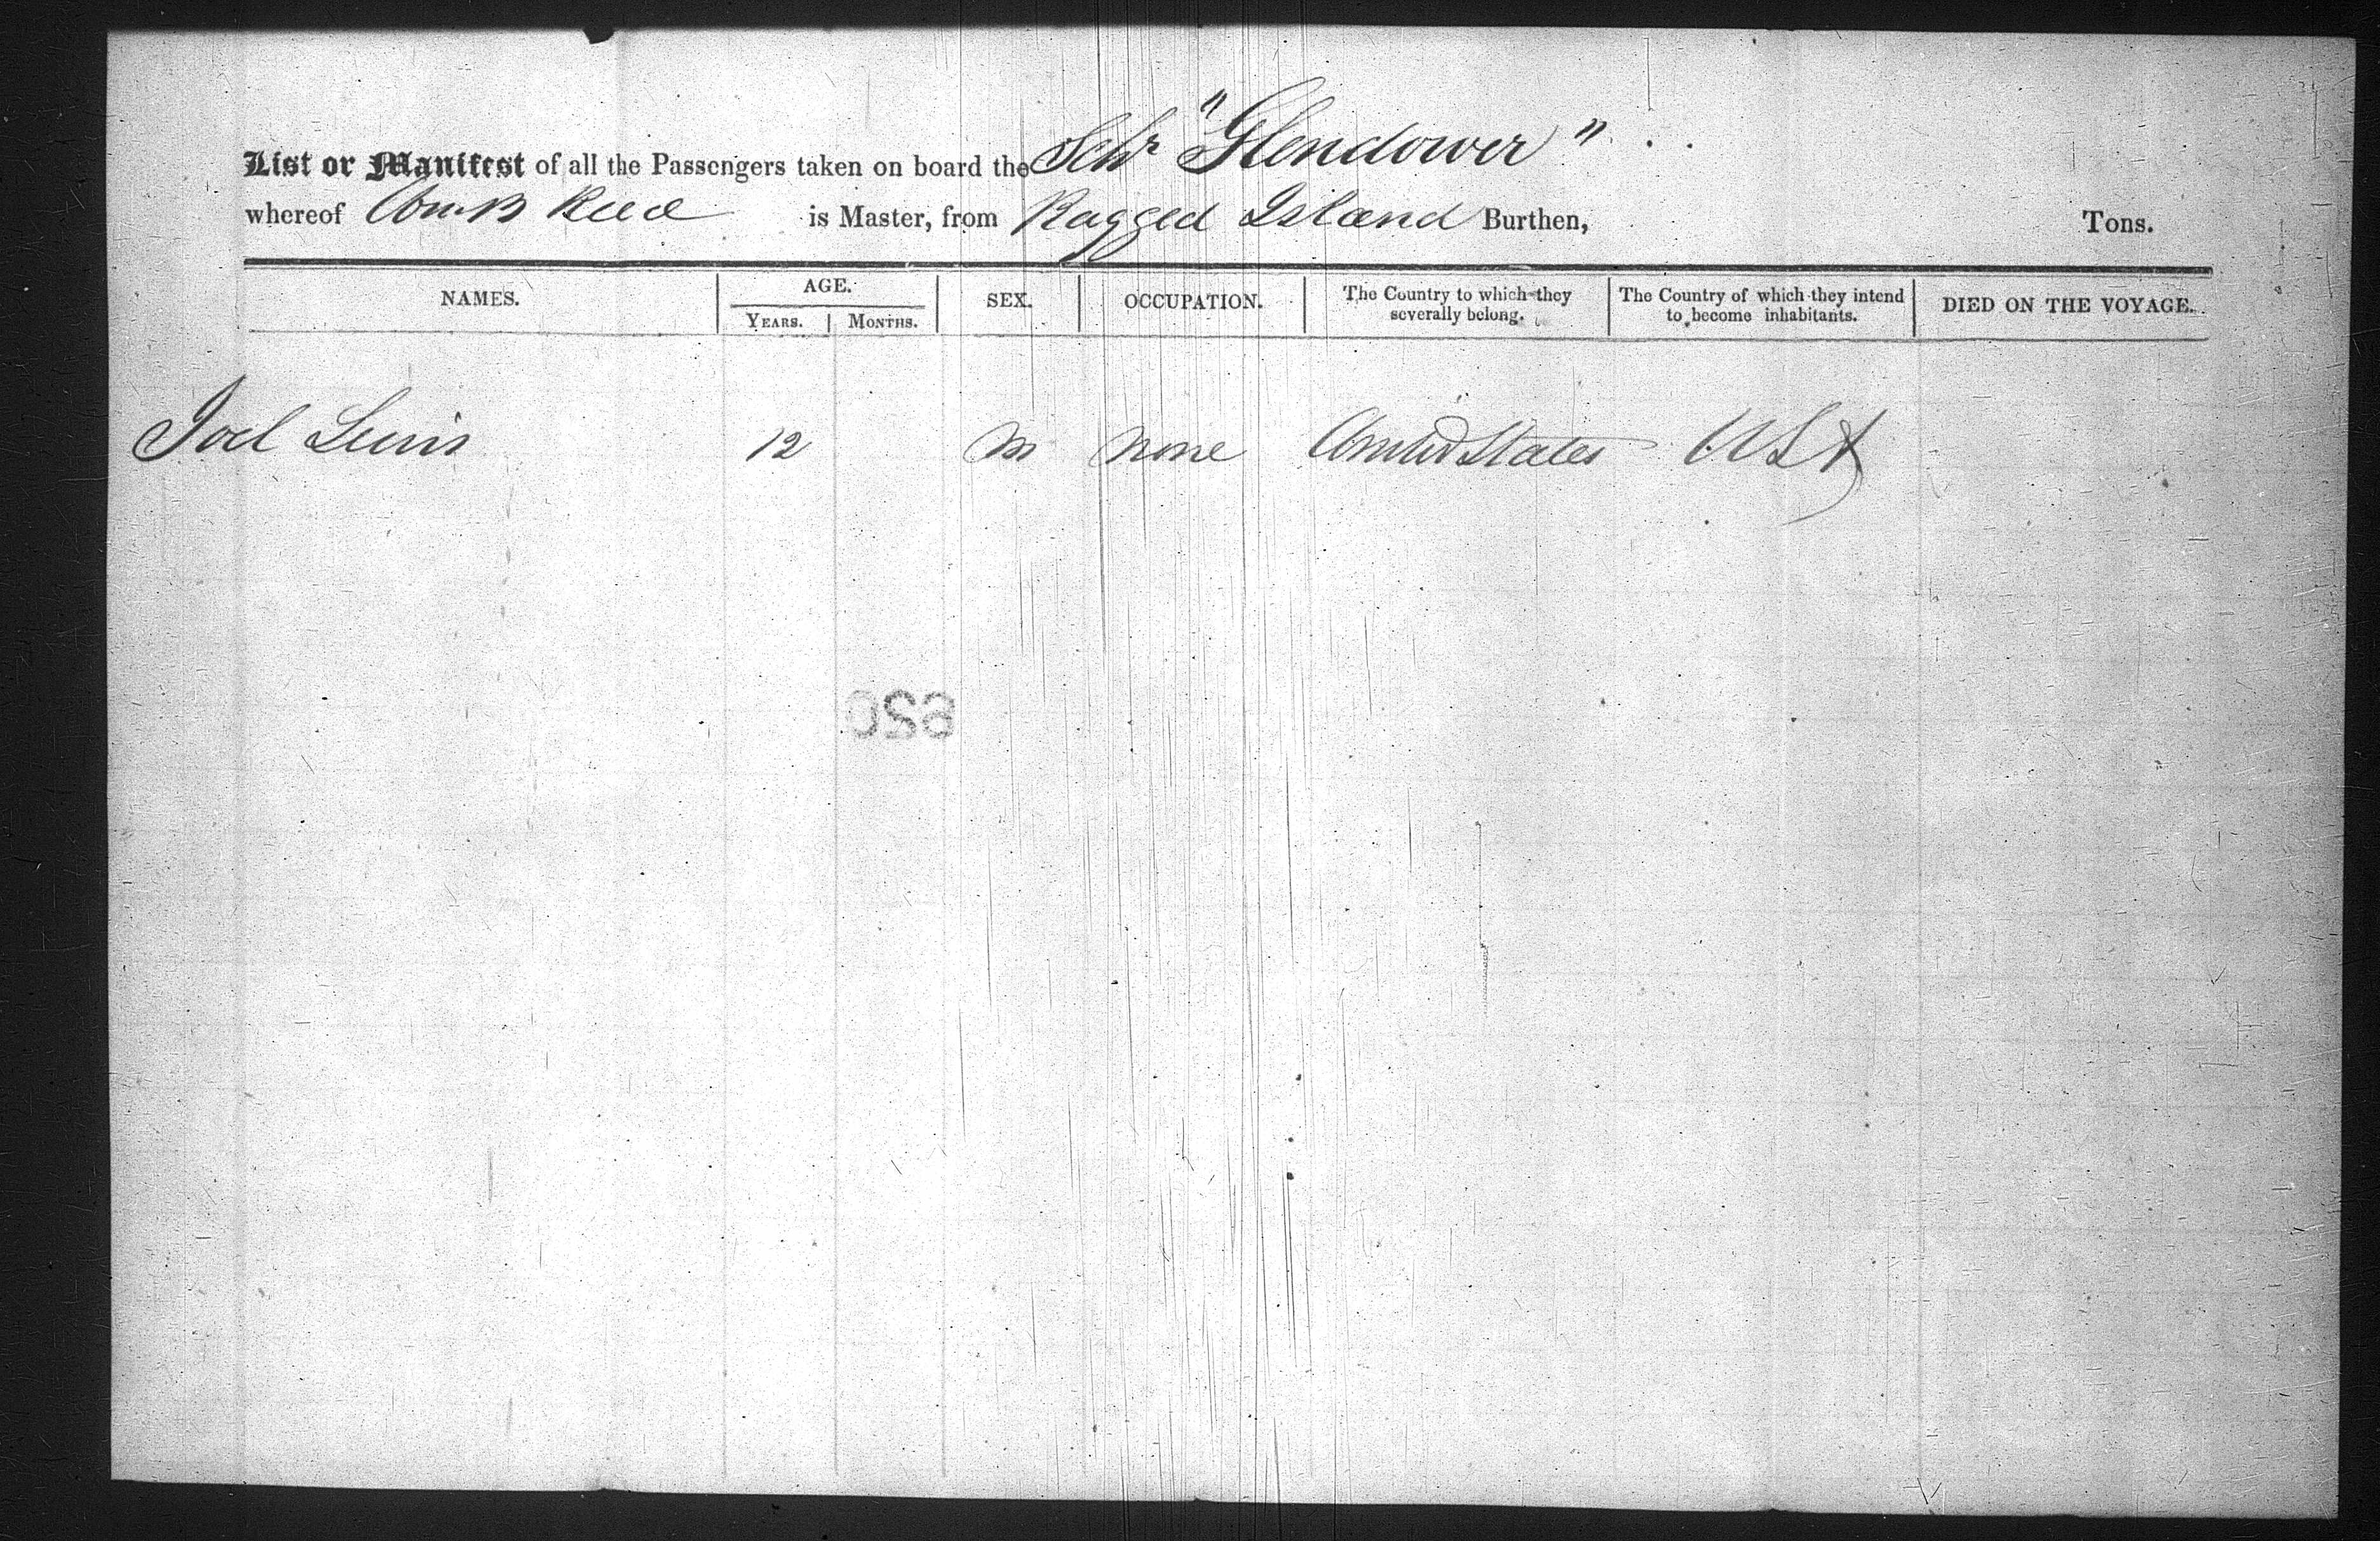 List or Manifest of all the Passengers taken on board the Schr "Glendower"
whereof Wm B Reed is Master, from Ragged Island Burthen, Tons.
NAMES. AGE. SEX. OCCUPATION. The Country to which they severally belong. The Country of which they intend to become inhabitants. DIED ON THE VOYAGE.
YEARS. MONTHS.
Joel Lewis 12 M none United States USA
650